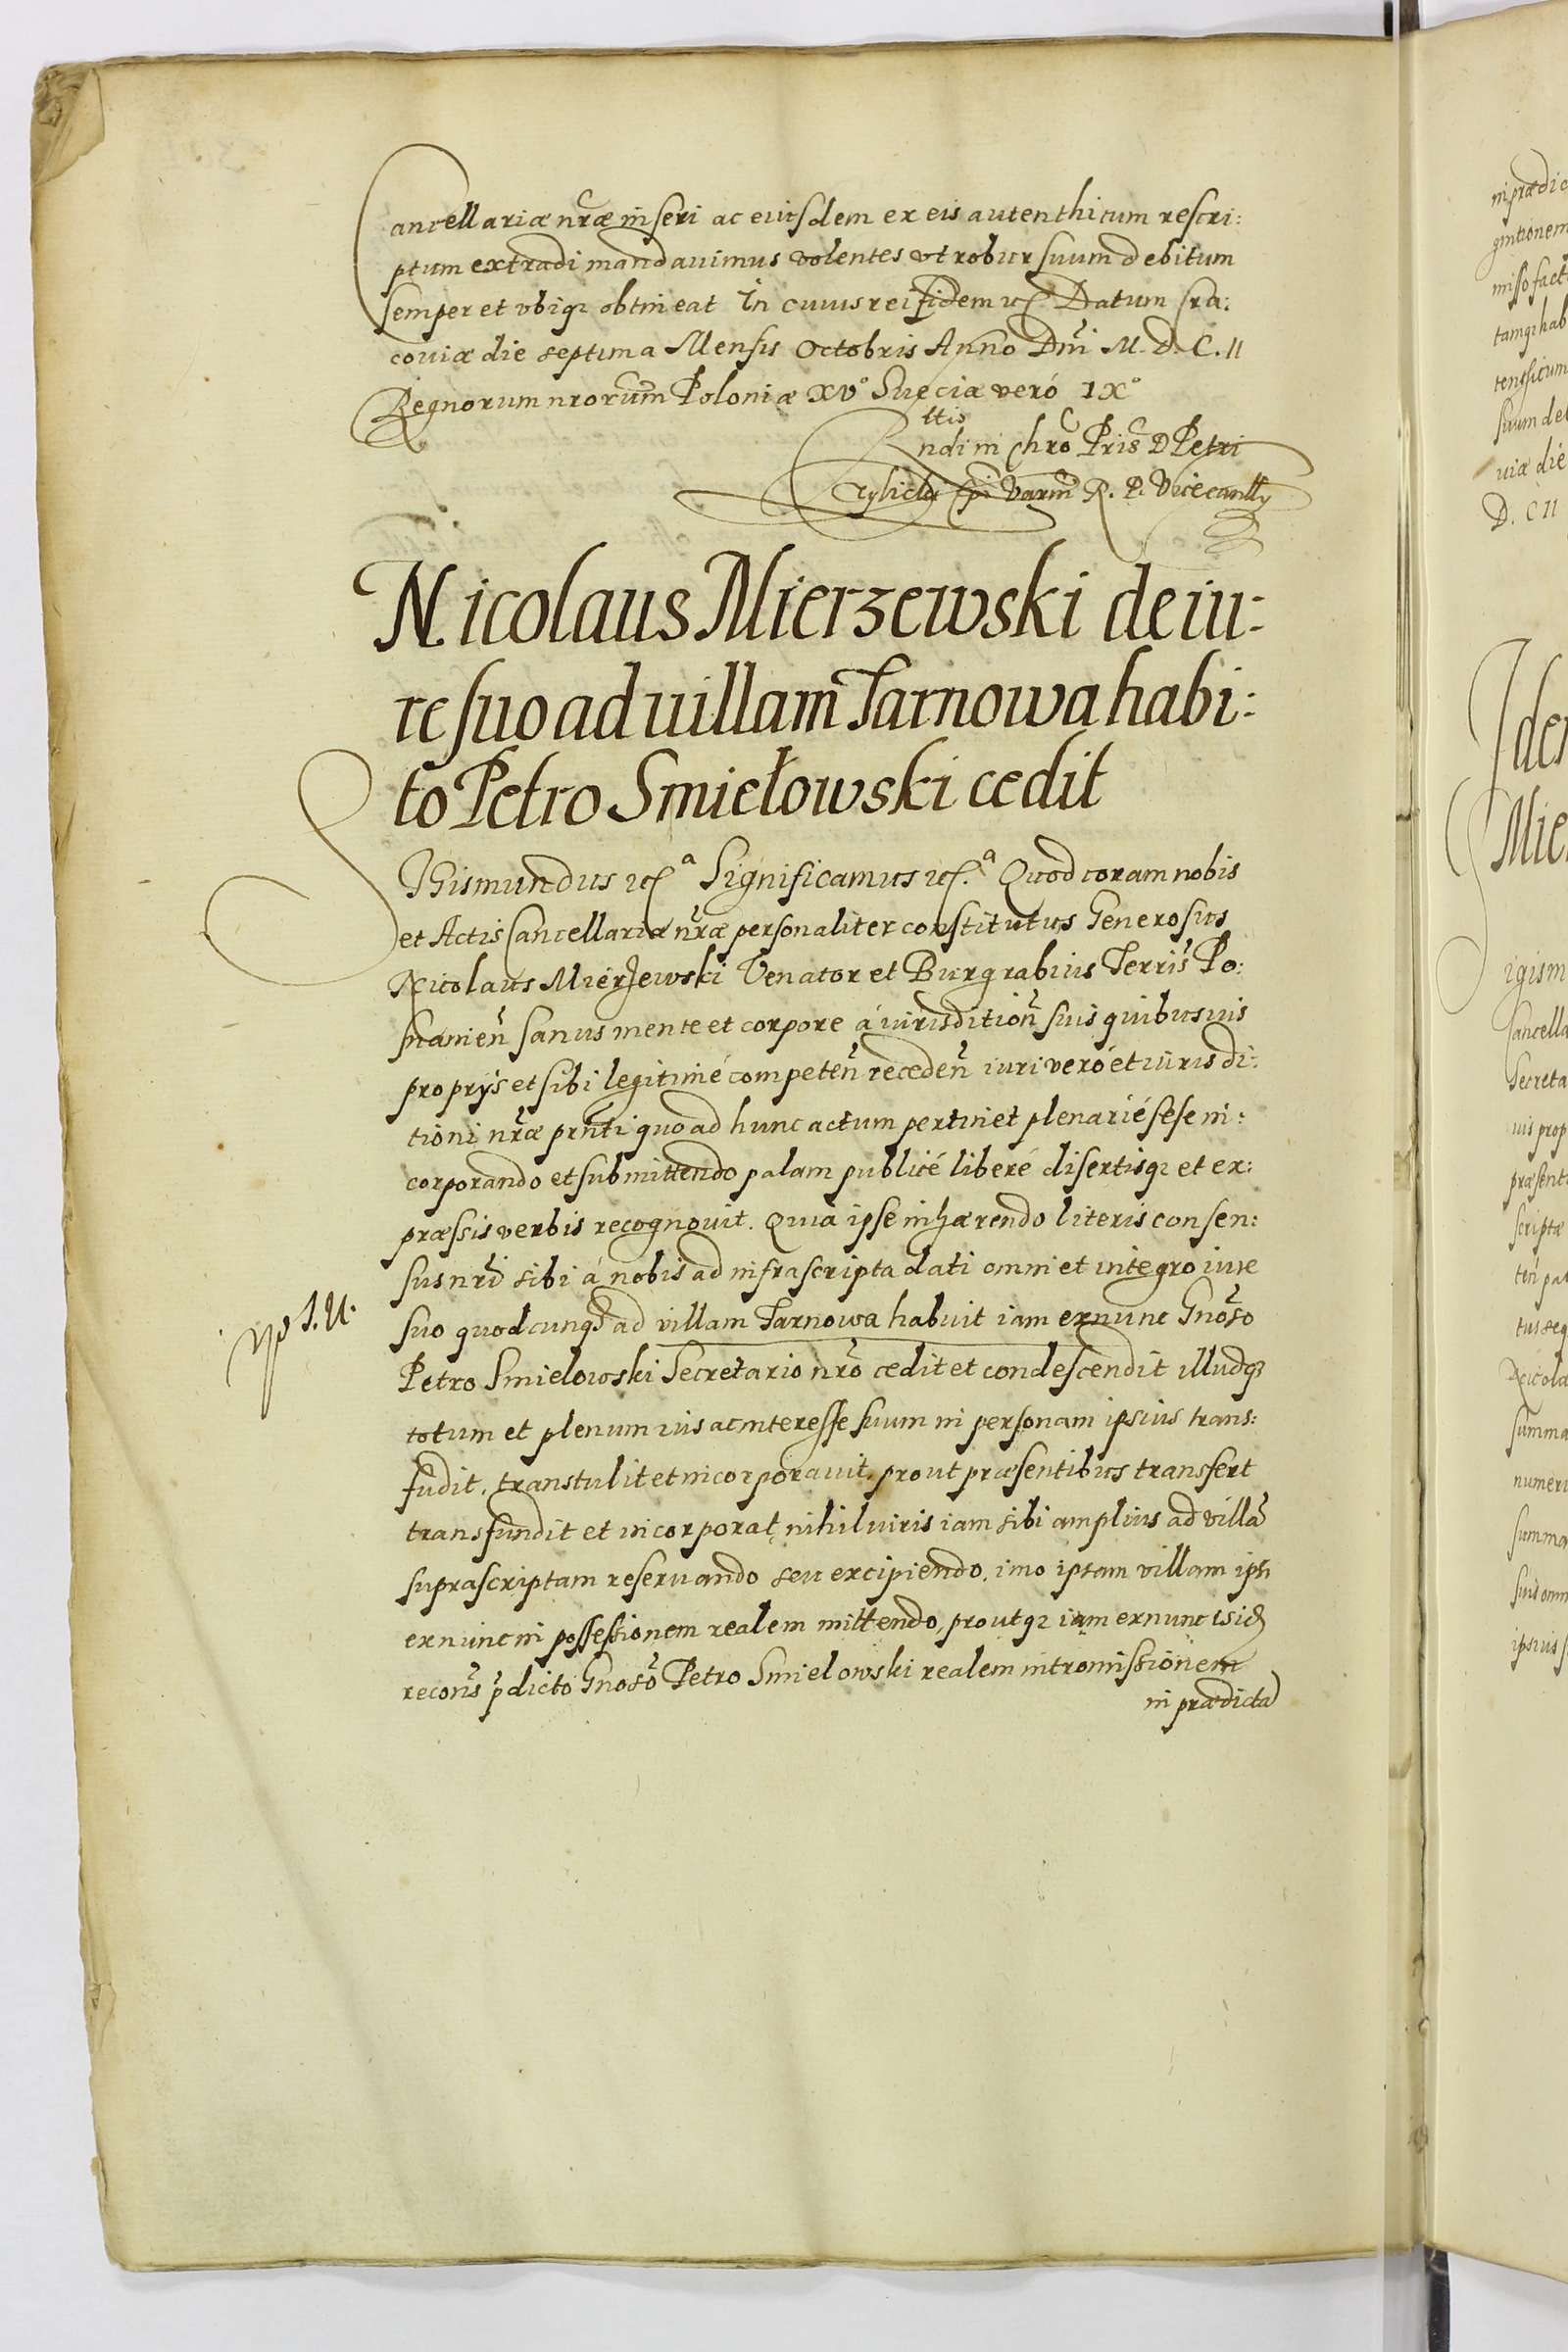 Cancellariæ nr̃æ inseri ac eiusdem ex eis autenthicum rescri:
ptum extradi mandavimus volentes vt robur suum debitum
semper et vbiqz obtineat In cuius rei fidem etc Datum Cra:
coviæ die septima Mensis Octobris Anno Dnĩ M.D.C.II
Regnorum nrorum Poloniæ XVº Sueciæ veró IXº
Rndi in Chrõ Pris D Petri
Tylicky Epi Varm R. P. Vicecanlly
Nicolaus Mierzewski de iu:
re suo ad uillam Tarnowa habi:
to Petro Smiełowski cedit
SIGismundus etc a Significamus etc. a Quod coram nobis
et Actis Cancellariæ nr̃æ personaliter constitutus Generosus
Nicolaus Mierzewski Venator et Burgrabius Terris Po:
snanien̄ sanus mente et corpore á iurisdition̄ suis quibusuis
proprijs et sibi legitimé competen̄ receden̄ iuri veró et iurisdi:
tioni nr̃æ prn̄ti quo ad hunc actum pertinet plenarié sese in:
corporando et submittendo palam publicé liberé disertisqz et ex:
præssis verbis recognouit. Quia ipse inhærendo literis consen:
sus nrĩ sibi á nobis ad infrascripta dati omni et integro iure
suo quodcunqz ad villam Tarnowa habuit iam exnunc Gnõso
Petro Smielowski Secretario nrõ cedit et condescendit illudqz
totum et plenum ius ac interesse suum in personam ipsius trans:
fudit, transtulit et incorporauit, prout præsentibus transfert
transfundit et incorporat, nihil iuris iam sibi amplius ad villã
suprascriptam reseruando seu excipiendo, imo ipsam villam ipsi
exnunc in possessionem realem mittendo, proutqz iam exnunc
recons pdicto Gnoso Petro Smielowski realem intromissionem
in prædicta